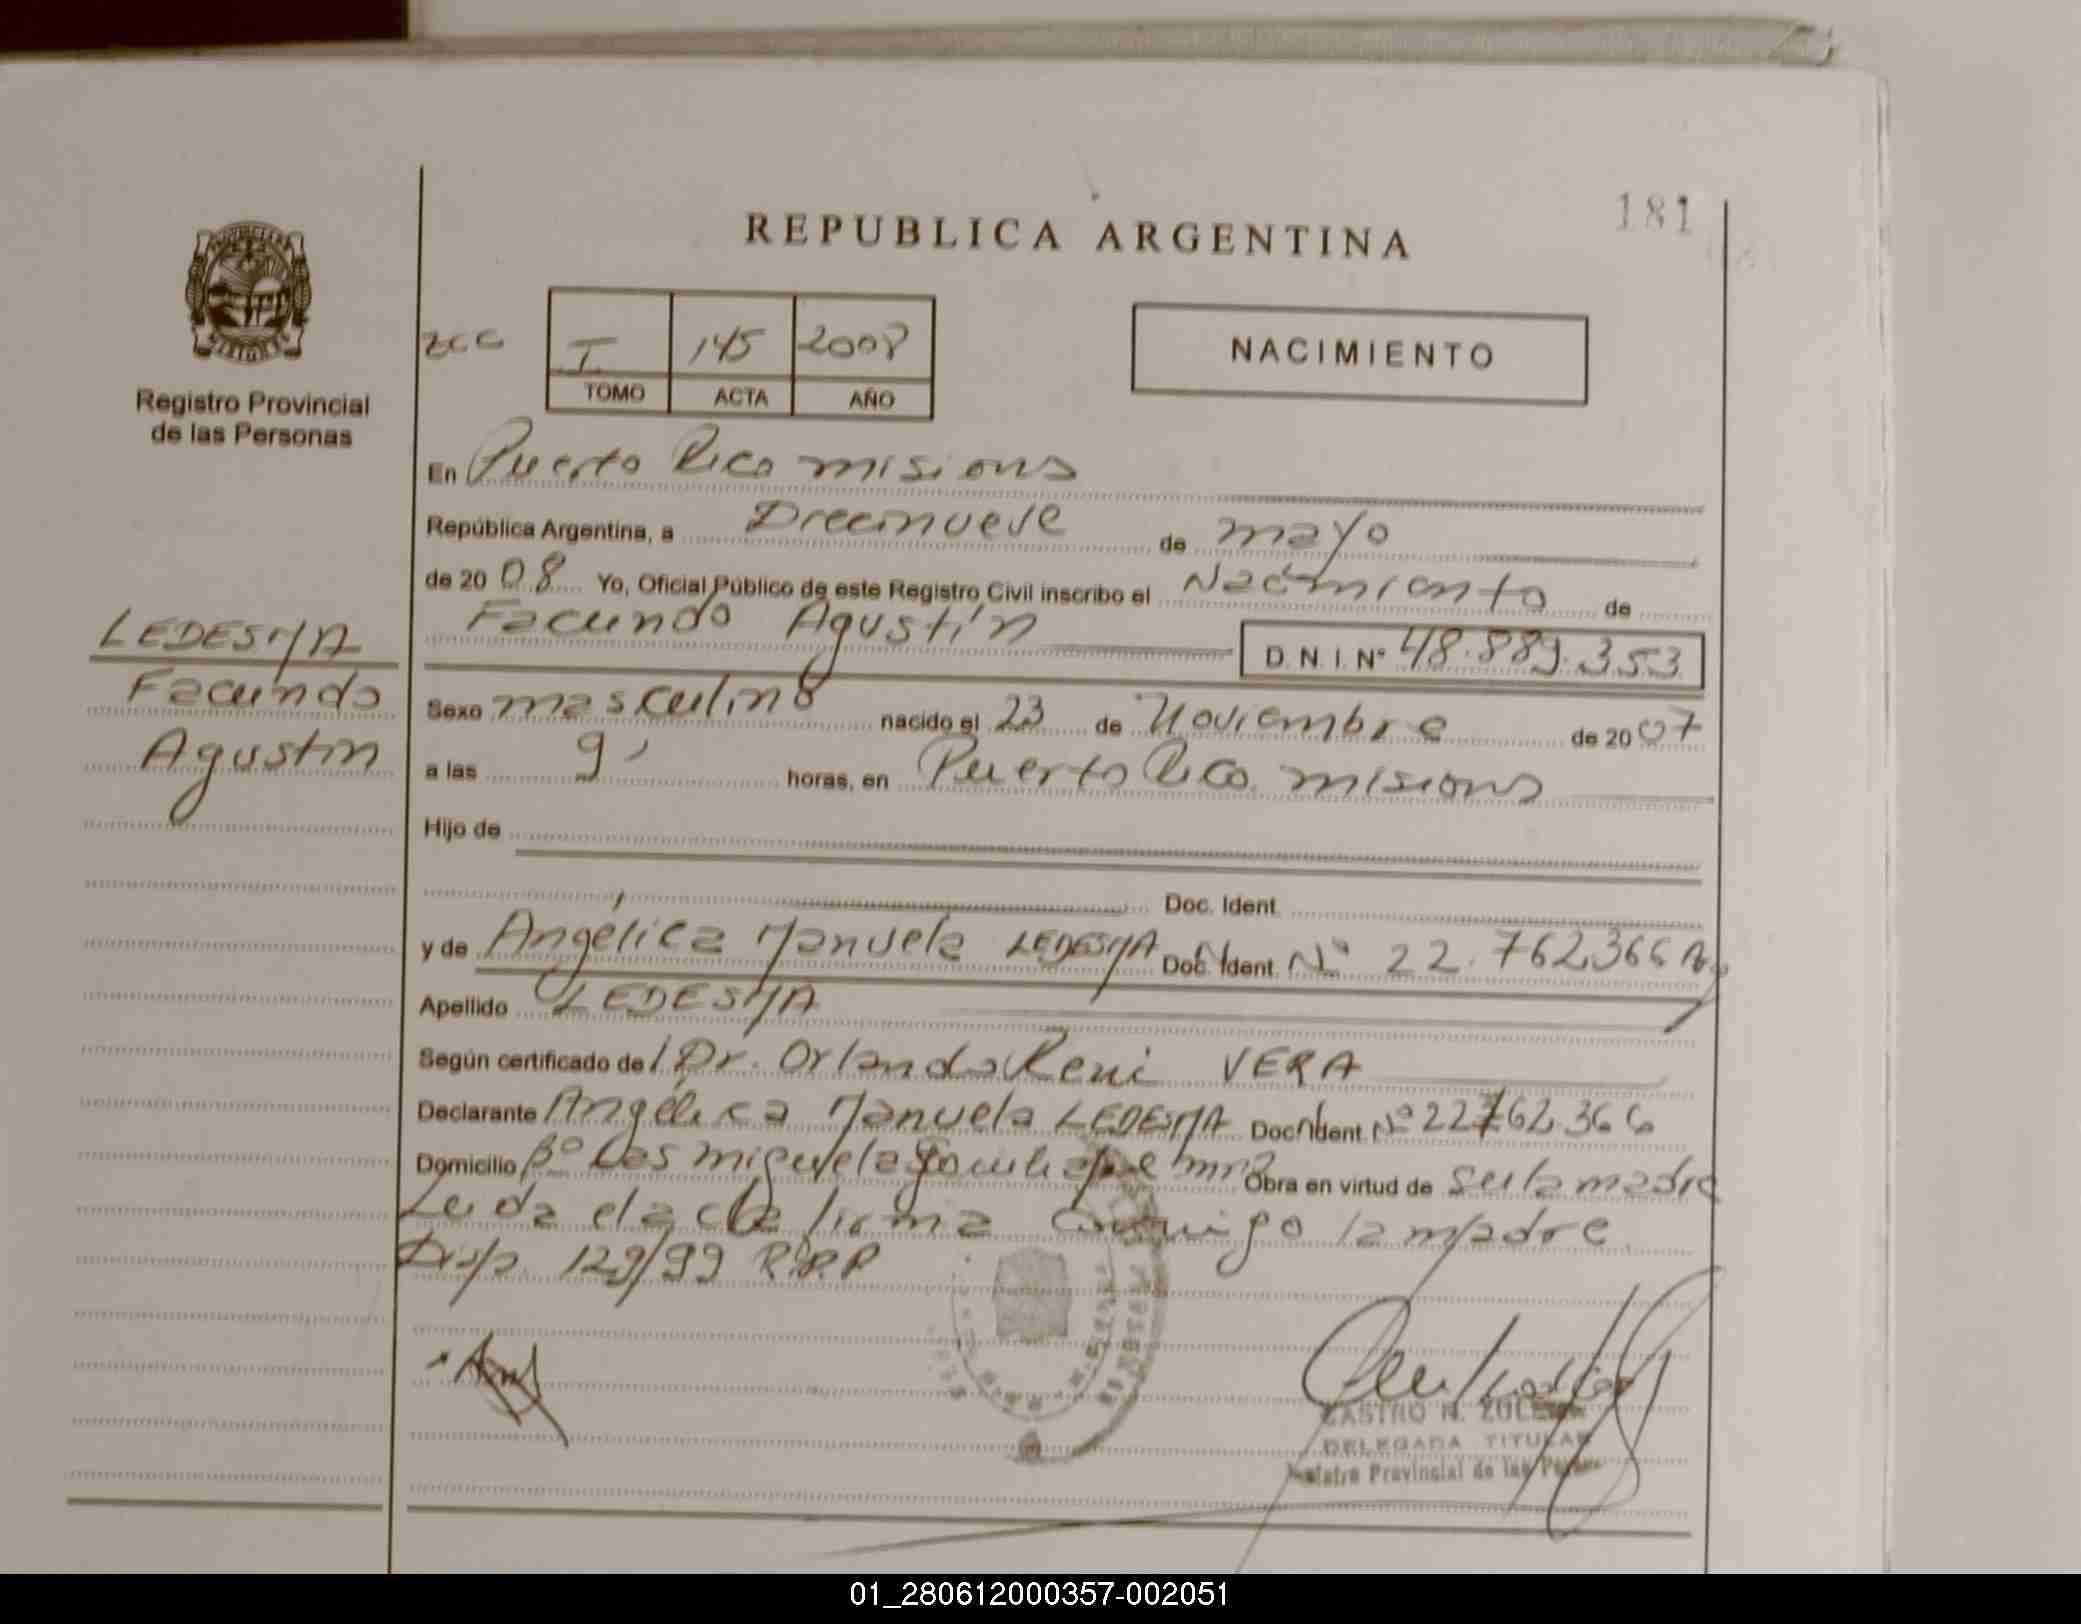 181
REPUBLICA ARGENTINA
NACIMIENTO
I 145 2008
TOMO ACTA AÑO
Registro Provincial
de las Personas
LEDESMA
Facundo
Agustín
En Puerto Rico misiones
República Argentina, a Diecinueve de mayo
de 2008 Yo, Oficial Público de este Registro Civil inscribo el Nacimiento de
Facundo Agustín D. N. I. Nº 48.889.353
Sexo masculino nacido el 23 de Noviembre de 2007
a las 9 horas, en Puerto Rico misiones
Hijo de
Doc. Ident.
y de Angélica Manuela LEDESMA Doc. Ident. Nº 22.762366
Apellido LEDESMA
Según certificado de Dr. Orlando René VERA
Declarante Angélica Manuela LEDESMA Doc. Ident. Nº 22762.366
Domicilio Bº Las Obra en virtud de ser la madre
Leida el acta firma conmigo la madre
Disp. 129/99 R.P.P
CASTRO N.
DELEGADA TITULAR
Registro Provincial de las
01_280612000357-002051